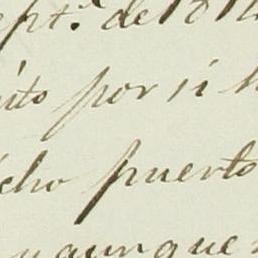 sept.e de 181
por si
cho puerto
y aunque